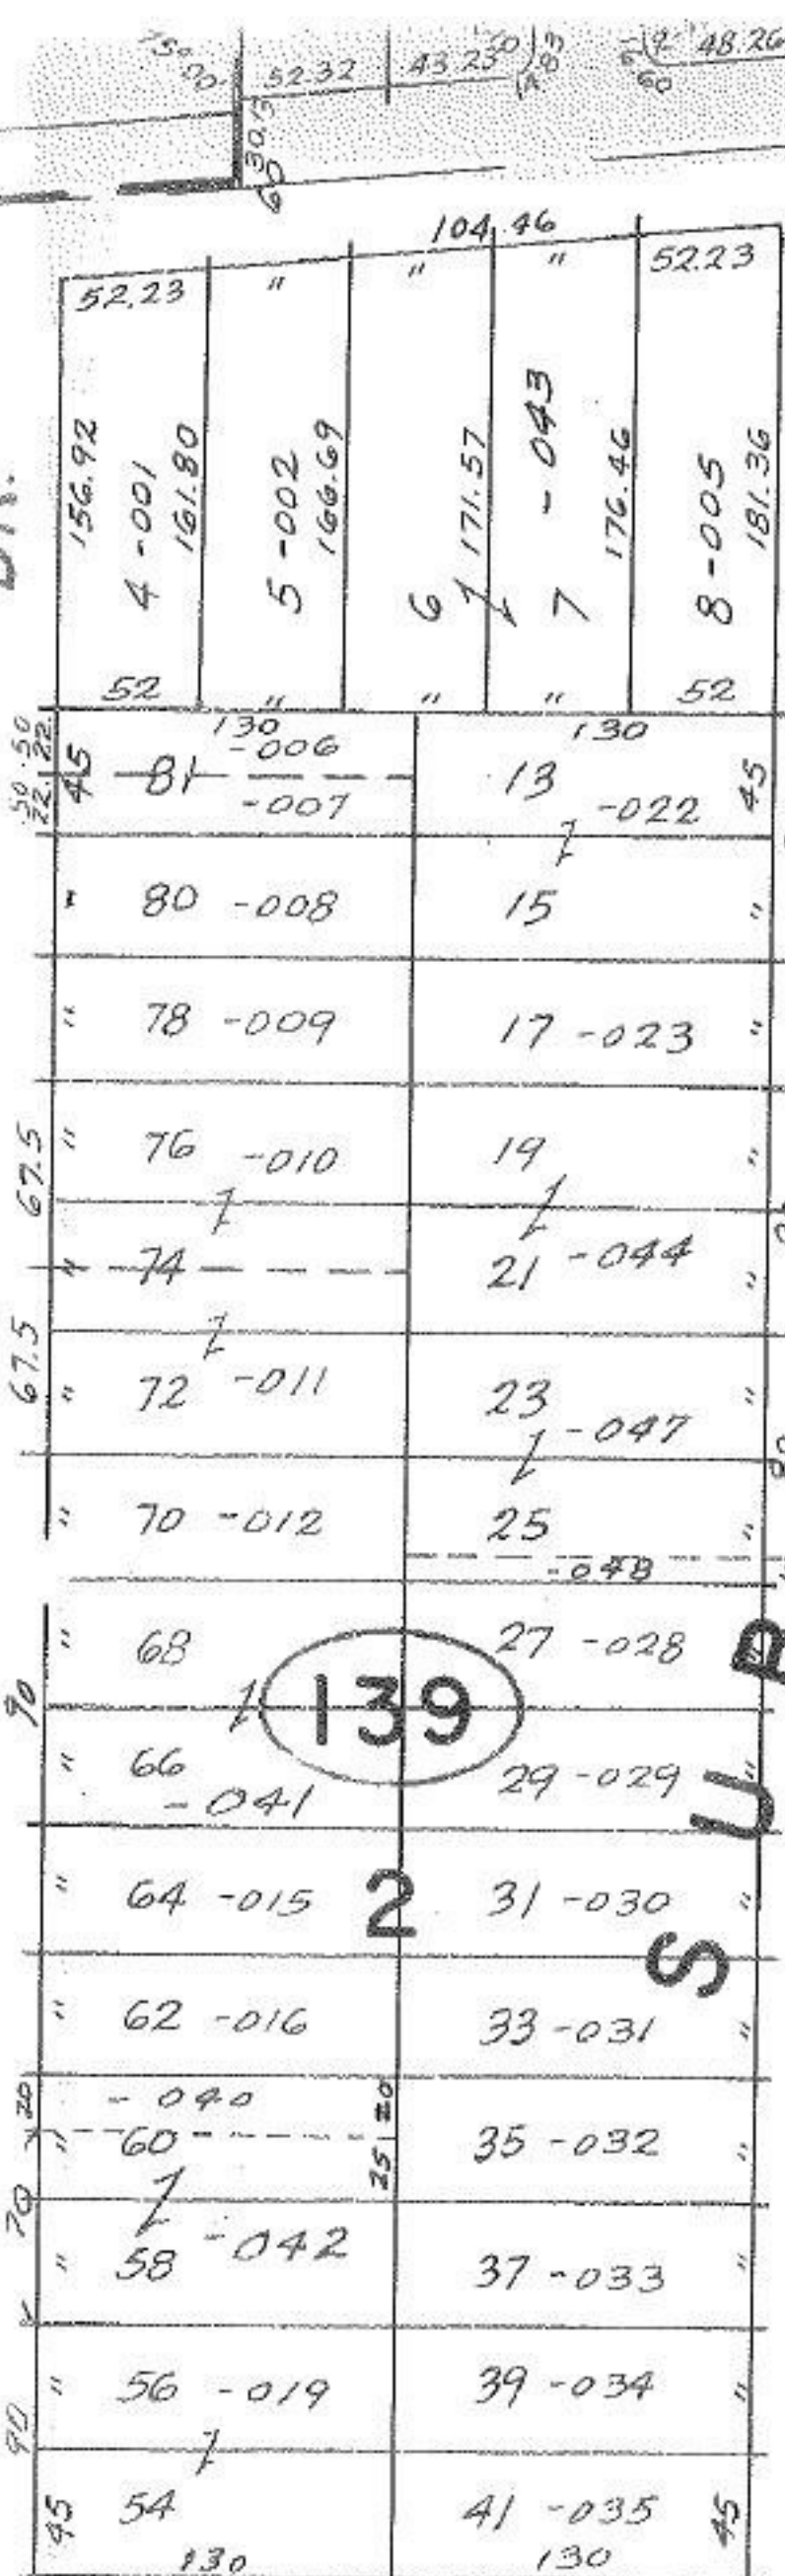 52.32 43.25 48.26
30.13
60
104.46
52.23 " " " 52.23
156.92 4 -001 161.80 5 -002 166.69 6 171.57 7 -043 176.46 8-005 181.36
52 " " " 52
130 130
22.50 22.50 45 81 -006 -007 13 -022 45
" 80 -008 15 "
" 78 -009 17 -023 "
67.5 " 76 -010 19 "
" 74 21 -044 "
67.5 " 72 -011 23 -047 "
" 70 -012 25 "
-048
" 68 27 -028
90 139
" 66 -041 29 -029 "
" 64 -015 2 31 -030 "
SUB
" 62 -016 33 -031 "
20 -040 20
" 60 25 35 -032 "
70
" 58 -042 37 -033 "
" 56 -019 39 -034 "
90
45 54 41 -035 45
130 130